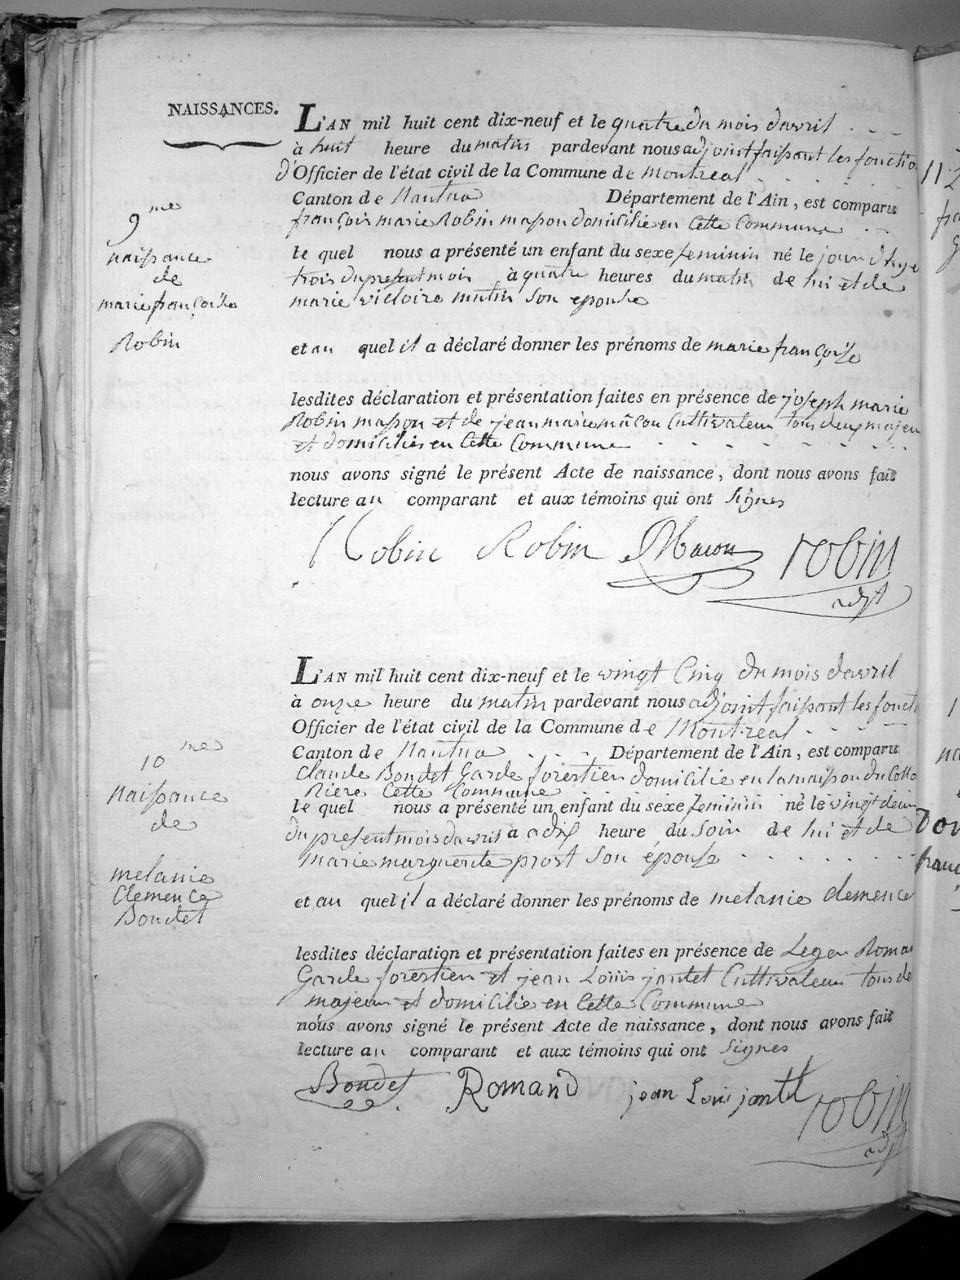 NAISSANCES.
L'AN mil huit cent dix-neuf et le quatre du mois davril
à huit heure du matin pardevant nous adjoint faisant les fonctio
d'Officier de l'état civil de la Commune de Montreal
Canton de Nantua Département de l'Ain, est comparu
françois marie Robin masson domicilié en Cette Commune
le quel nous a présenté un enfant du sexe feminin né le jour d'hye
trois du présent mois à quatre heures du matin de lui et de
marie victoire mutin Son epouse
et au quel il a déclaré donner les prénoms de marie françoise
lesdites déclaration et présentation faites en présence de joseph marie
Robin masson et de jean marie mâcon Cultivateur tous deux majeu
et domiciliés en Cette Commune
nous avons signé le présent Acte de naissance, dont nous avons fait
lecture au comparant et aux témoins qui ont Signes
9me
naissance
de
marie françoise
Robin
Robin Robin Macon robin
adjt
L'AN mil huit cent dix-neuf et le vingt Cinq du mois davril
à onze heure du matin pardevant nous adjoint faisant les foncti
Officier de l'état civil de la Commune de Montreal
Canton de Nantua Département de l'Ain, est comparu
Claude Boudet Garde forestier domicilié en la maison du Cotto
Riere Cette Commune
le quel nous a présenté un enfant du sexe feminin né le vingt deux
du present mois davril à dix heure du soir de lui et de
marie marguerite prost Son épouse
et au quel il a déclaré donner les prénoms de melanie clemence
lesdites déclaration et présentation faites en présence de Leger Roman
Garde forestier et jean Louis jantet Cultivateur tous de
majeur et domicilié en Cette Commune
nous avons signé le présent Acte de naissance, dont nous avons fait
lecture au comparant et aux témoins qui ont Signes
10me
naissance
de
melanie
Clemence
Boudet
Boudet Romand jean Louis jantet robin
adjt